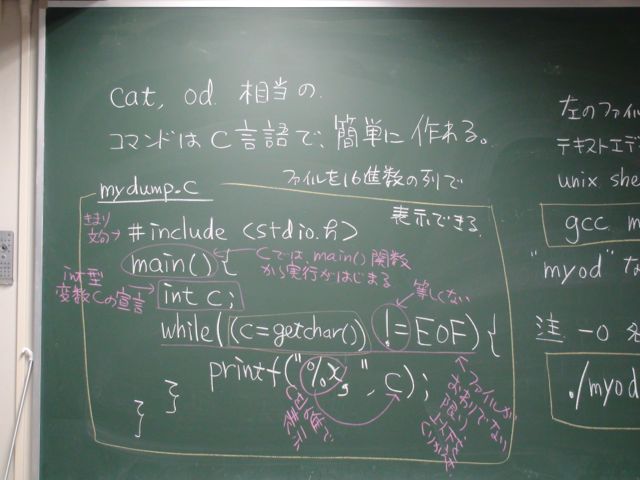 cat, od 相当の
コマンドは C言語で、簡単に 作れる。
mydump.c
ファイルを16進数の列で
表示できる
きまり
文句→
#include <stdio.h>
main() {
Cでは、main() 関数
から実行がはじまる
int型
変数Cの宣言
int c;
等しくない
while((c=getchar()) != EOF) {
printf("%x, ", c);
}
}
ファイルが
左のファイル
テキストエディ
unix she
gcc m
"myod" な
注 -o 名
./myod